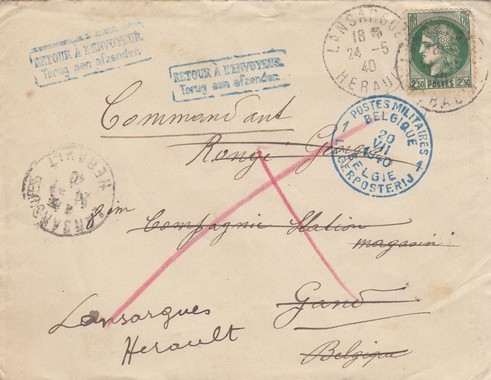 RETOUR À L'ENVOYEUR.
Terug aan afzender.
RETOUR À L'ENVOYEUR.
Terug aan afzender.
LANSARGUES
18
24 -5
40
HERAULT
2F50 POSTES 2F50
Commandant
Rongé Georges
POSTES MILITAIRES
BELGIQUE
4 20 4
VII
1940
BELGIE
LEGERPOSTERIJ
LANSARGUES
HERAULT
Compagnie Station
magasin
Gand
Belgique
Lansargues
Herault